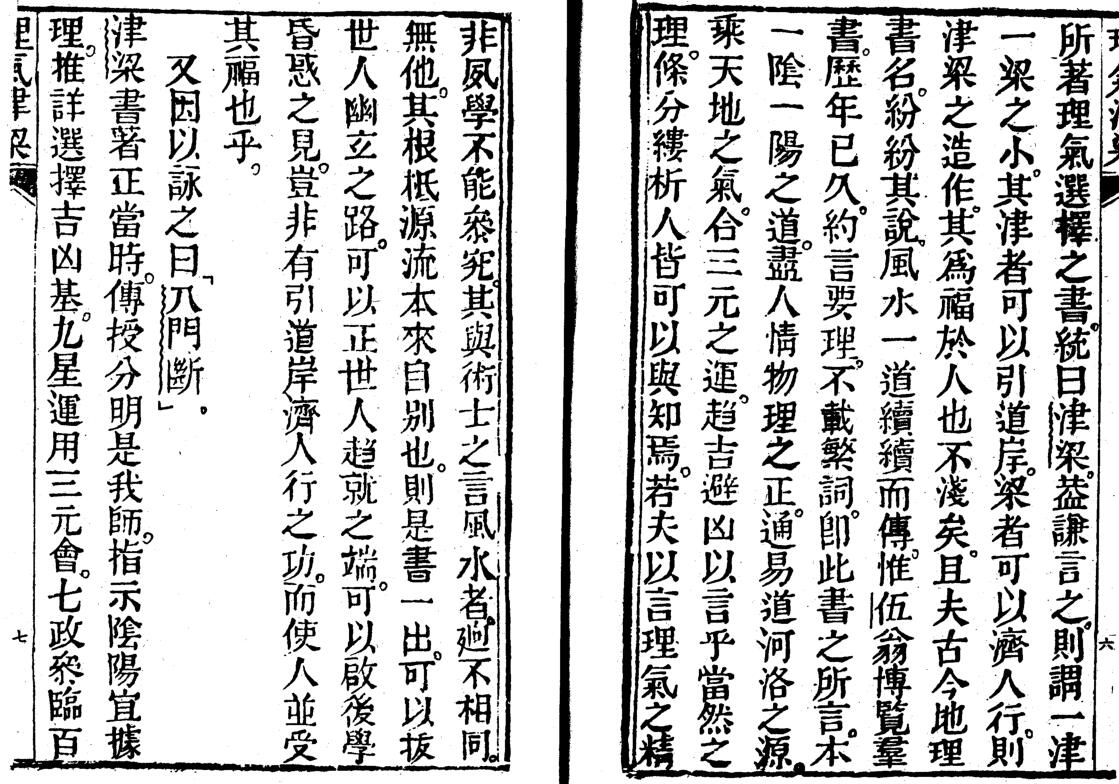 所著理氣選擇之書。統曰津梁。葢謙言之。則謂一津
一梁之小。其津者可以引道岸。梁者可以濟人行。則
津梁之造作。其爲福於人也不淺矣。且夫古今地理
書名。紛紛其說。風水一道續續而傳。惟伍翁博覽羣
書。歷年已久。約言要理。不載繁詞。卽此書之所言。本
一陰一陽之道。盡人情物理之正。通易道河洛之源。
乘天地之氣。合三元之運。趋吉避凶以言乎當然之
理。條分縷析人皆可以與知焉。若夫以言理氣之精
六
非夙學不能叅究。其與術士之言風水者。迥不相同。
無他。其根柢源流本來自別也。則是書一出。可以拔
世人幽立之路。可以正世人趋就之端。可以啟後學
昏惑之見。豈非有引道岸濟人行之功。而使人並受
其福也乎。
又因以詠之曰「八門斷。」
津梁書著正當時。傳授分明是我師。指示陰陽宜據
理。推詳選擇吉凶基。九星運用三元會。七政叅臨百
理氣津梁
七